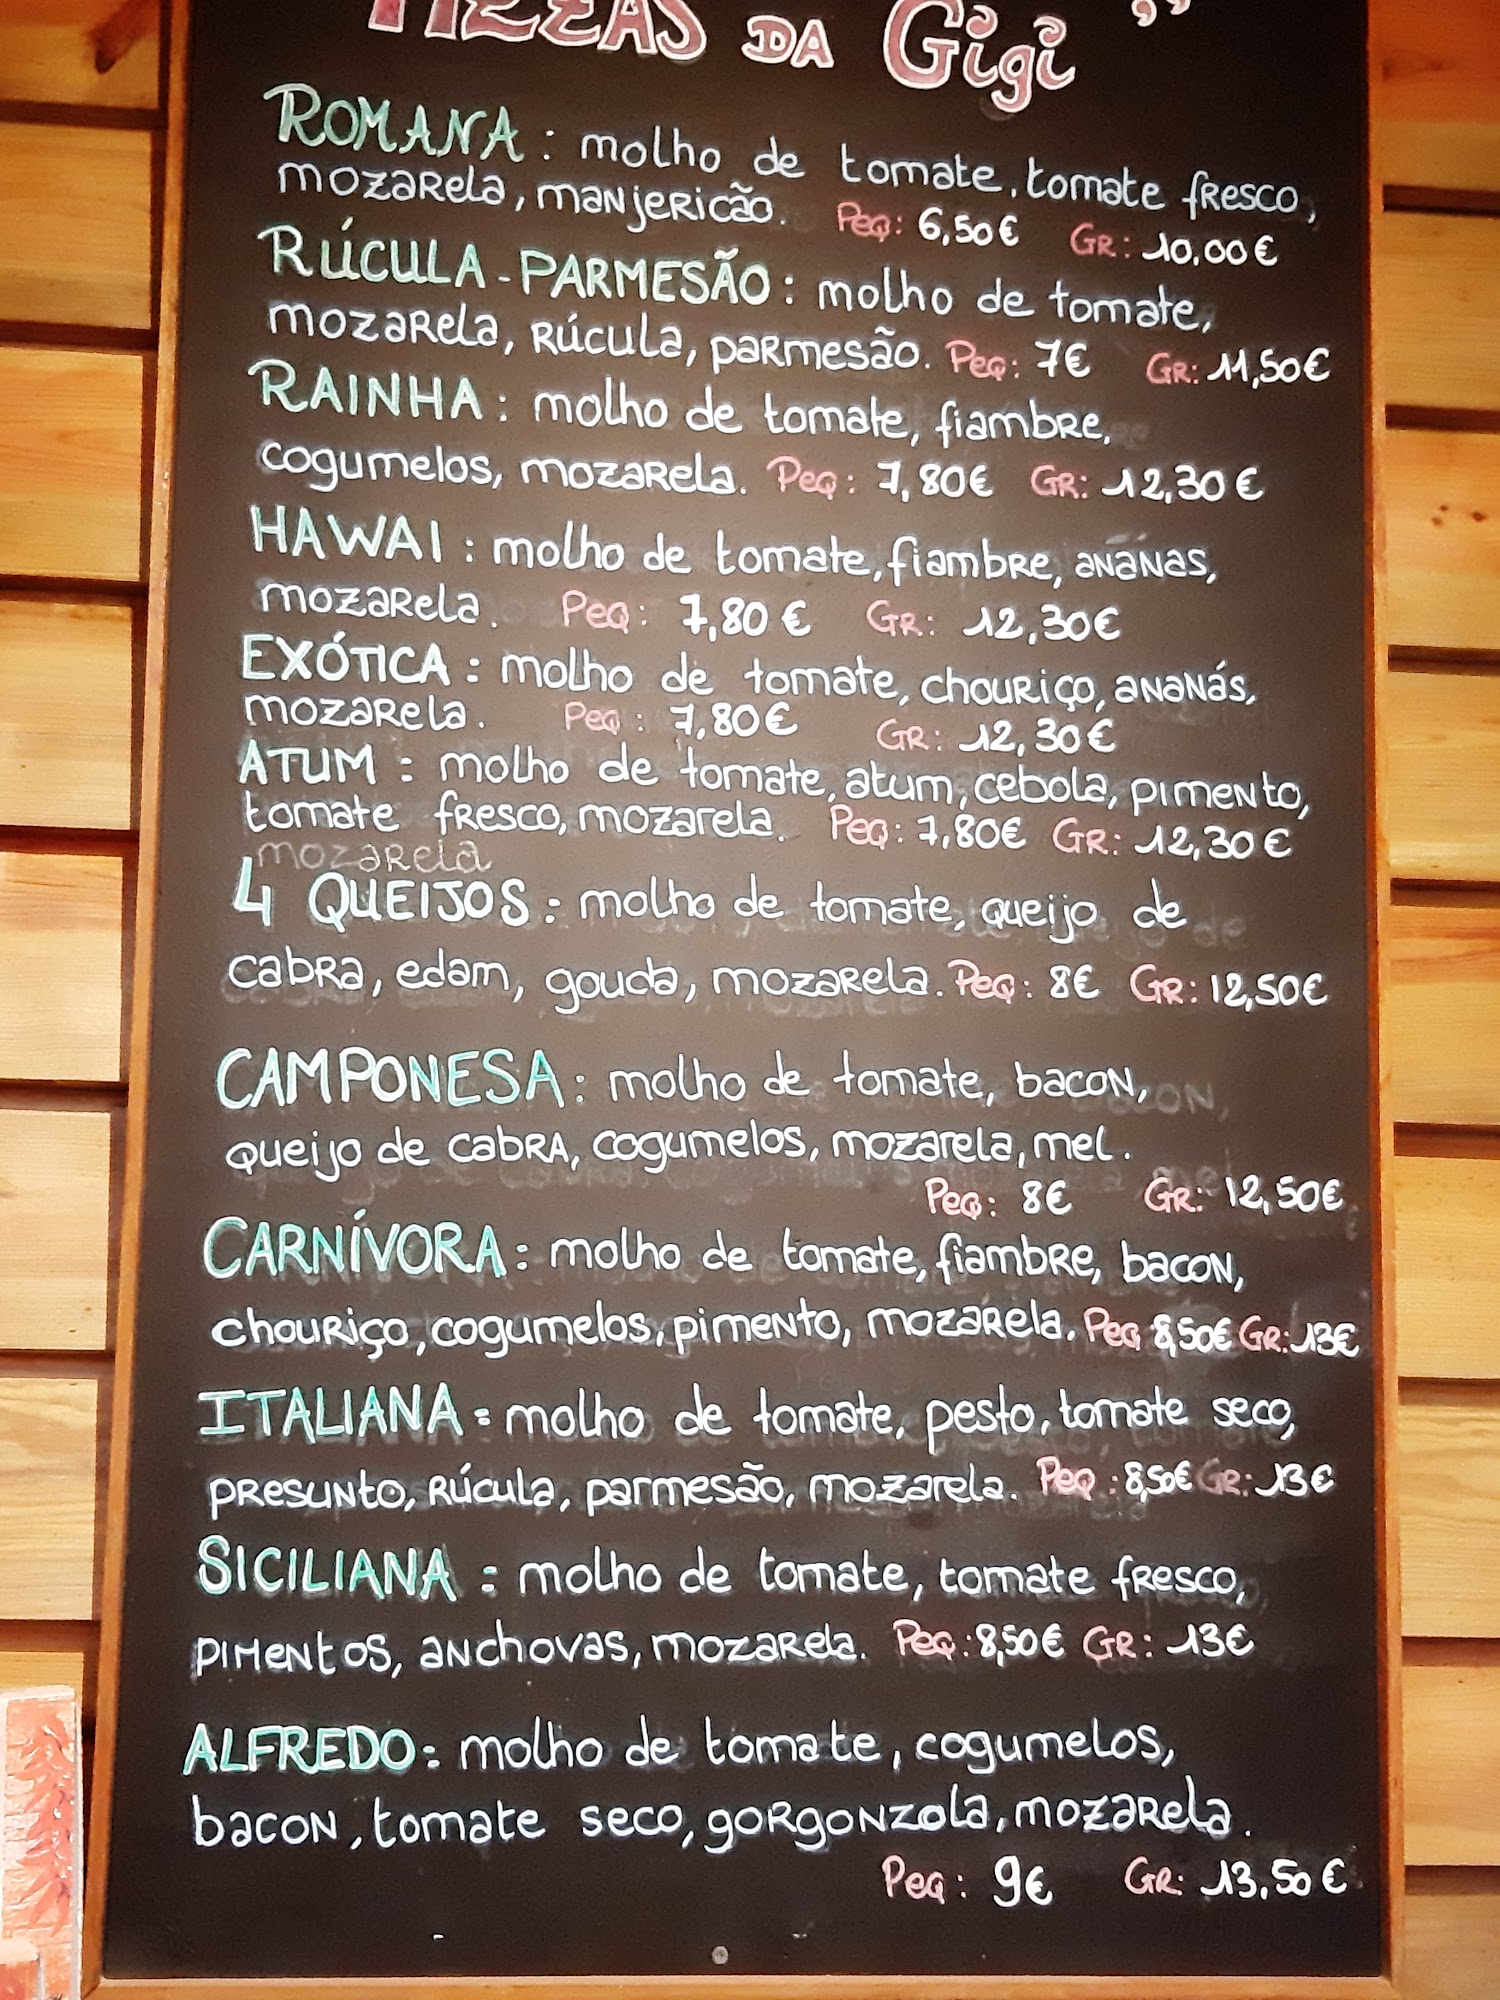 PIZZAS DA Gigi "
ROMANA : molho de tomate, tomate fresco,
mozarela, manjericão. Peq: 6,50€ GR: 10,00€
RÚCULA-PARMESÃO : molho de tomate,
mozarela, rúcula, parmesão. Peq: 7€ GR: 11,50€
RAINHA : molho de tomate, fiambre,
cogumelos, mozarela. Peq: 7,80€ GR: 12,30€
HAWAI : molho de tomate, fiambre, ananas,
mozarela. Peq: 7,80€ GR: 12,30€
EXÓTICA : molho de tomate, chouriço, ananás,
mozarela. Peq: 7,80€ GR: 12,30€
ATUM : molho de tomate, atum, cebola, pimento,
tomate fresco, mozarela. Peq: 7,80€ GR: 12,30€
mozarela
4 QUEIJOS : molho de tomate, queijo de
cabra, edam, gouda, mozarela. Peq: 8€ GR: 12,50€
CAMPONESA : molho de tomate, bacon,
queijo de cabra, cogumelos, mozarela, mel.
Peq: 8€ GR: 12,50€
CARNÍVORA : molho de tomate, fiambre, bacon,
chouriço, cogumelos, pimento, mozarela. Peq 8,50€ GR: 13€
ITALIANA : molho de tomate, pesto, tomate seco,
presunto, rúcula, parmesão, mozarela. Peq: 8,50€ GR: 13€
SICILIANA : molho de tomate, tomate fresco,
pimentos, anchovas, mozarela. Peq: 8,50€ GR: 13€
ALFREDO : molho de tomate, cogumelos,
bacon, tomate seco, gorgonzola, mozarela.
Peq: 9€ GR: 13,50€